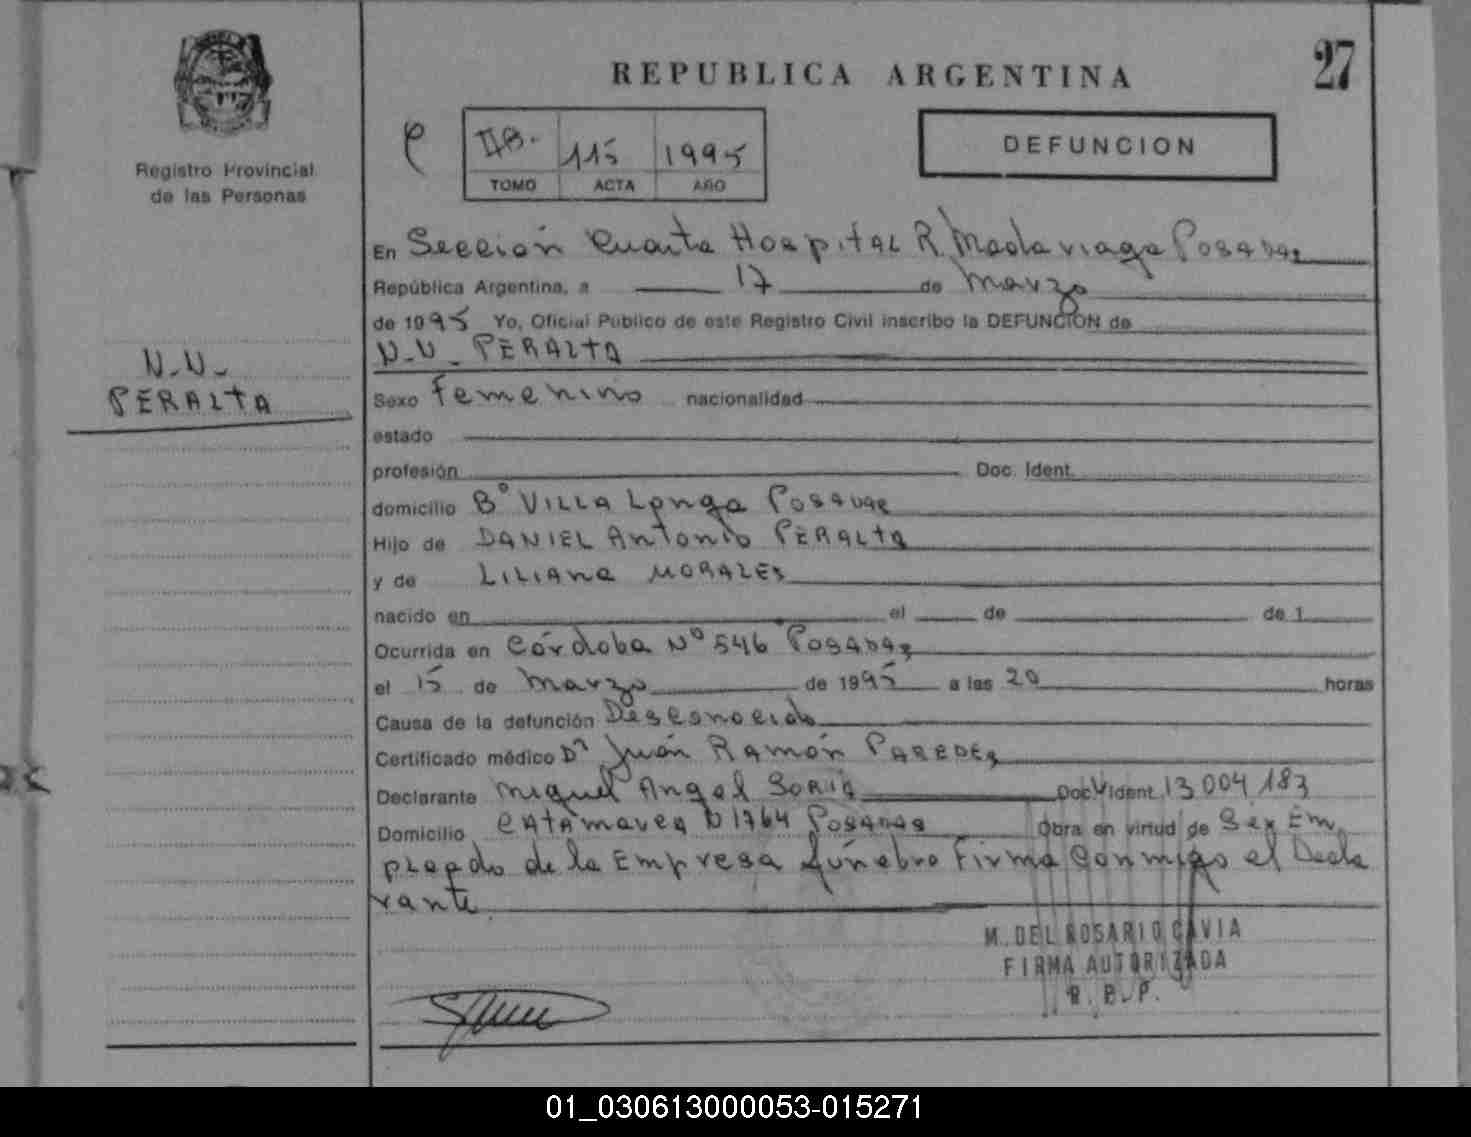 27
REPUBLICA ARGENTINA
DEFUNCION
115 1995
TOMO ACTA AÑO
Registro Provincial
de las Personas
N.N.
PERALTA
En Sección Cuarta Hospital R. Madariaga Posadas
República Argentina, a 17 de Marzo
de 1995 Yo, Oficial Público de este Registro Civil inscribo la DEFUNCION de
N.N. PERALTA
Sexo Femenino nacionalidad
estado
profesión Doc. Ident.
domicilio B° VILLA Longa Posadas
Hijo de DANIEL Antonio PERALTA
y de LILIANA MORALES
nacido en el de de 1
Ocurrida en Córdoba N° 546 Posadas
el 15 de Marzo de 1995 a las 20 horas
Causa de la defunción Desconocido
Certificado médico Dr Juán Ramón PAREDES
Declarante Miguel Angel SORIA Doc. Ident. 13 004 183
Domicilio CATAMARCA N 1764 Posadas Obra en virtud de Ser Em
pleado de la Empresa fúnebre Firma Conmigo el Decla
rante
M. DEL ROSARIO CAVIA
FIRMA AUTORIZADA
R. P. P.
01_030613000053-015271